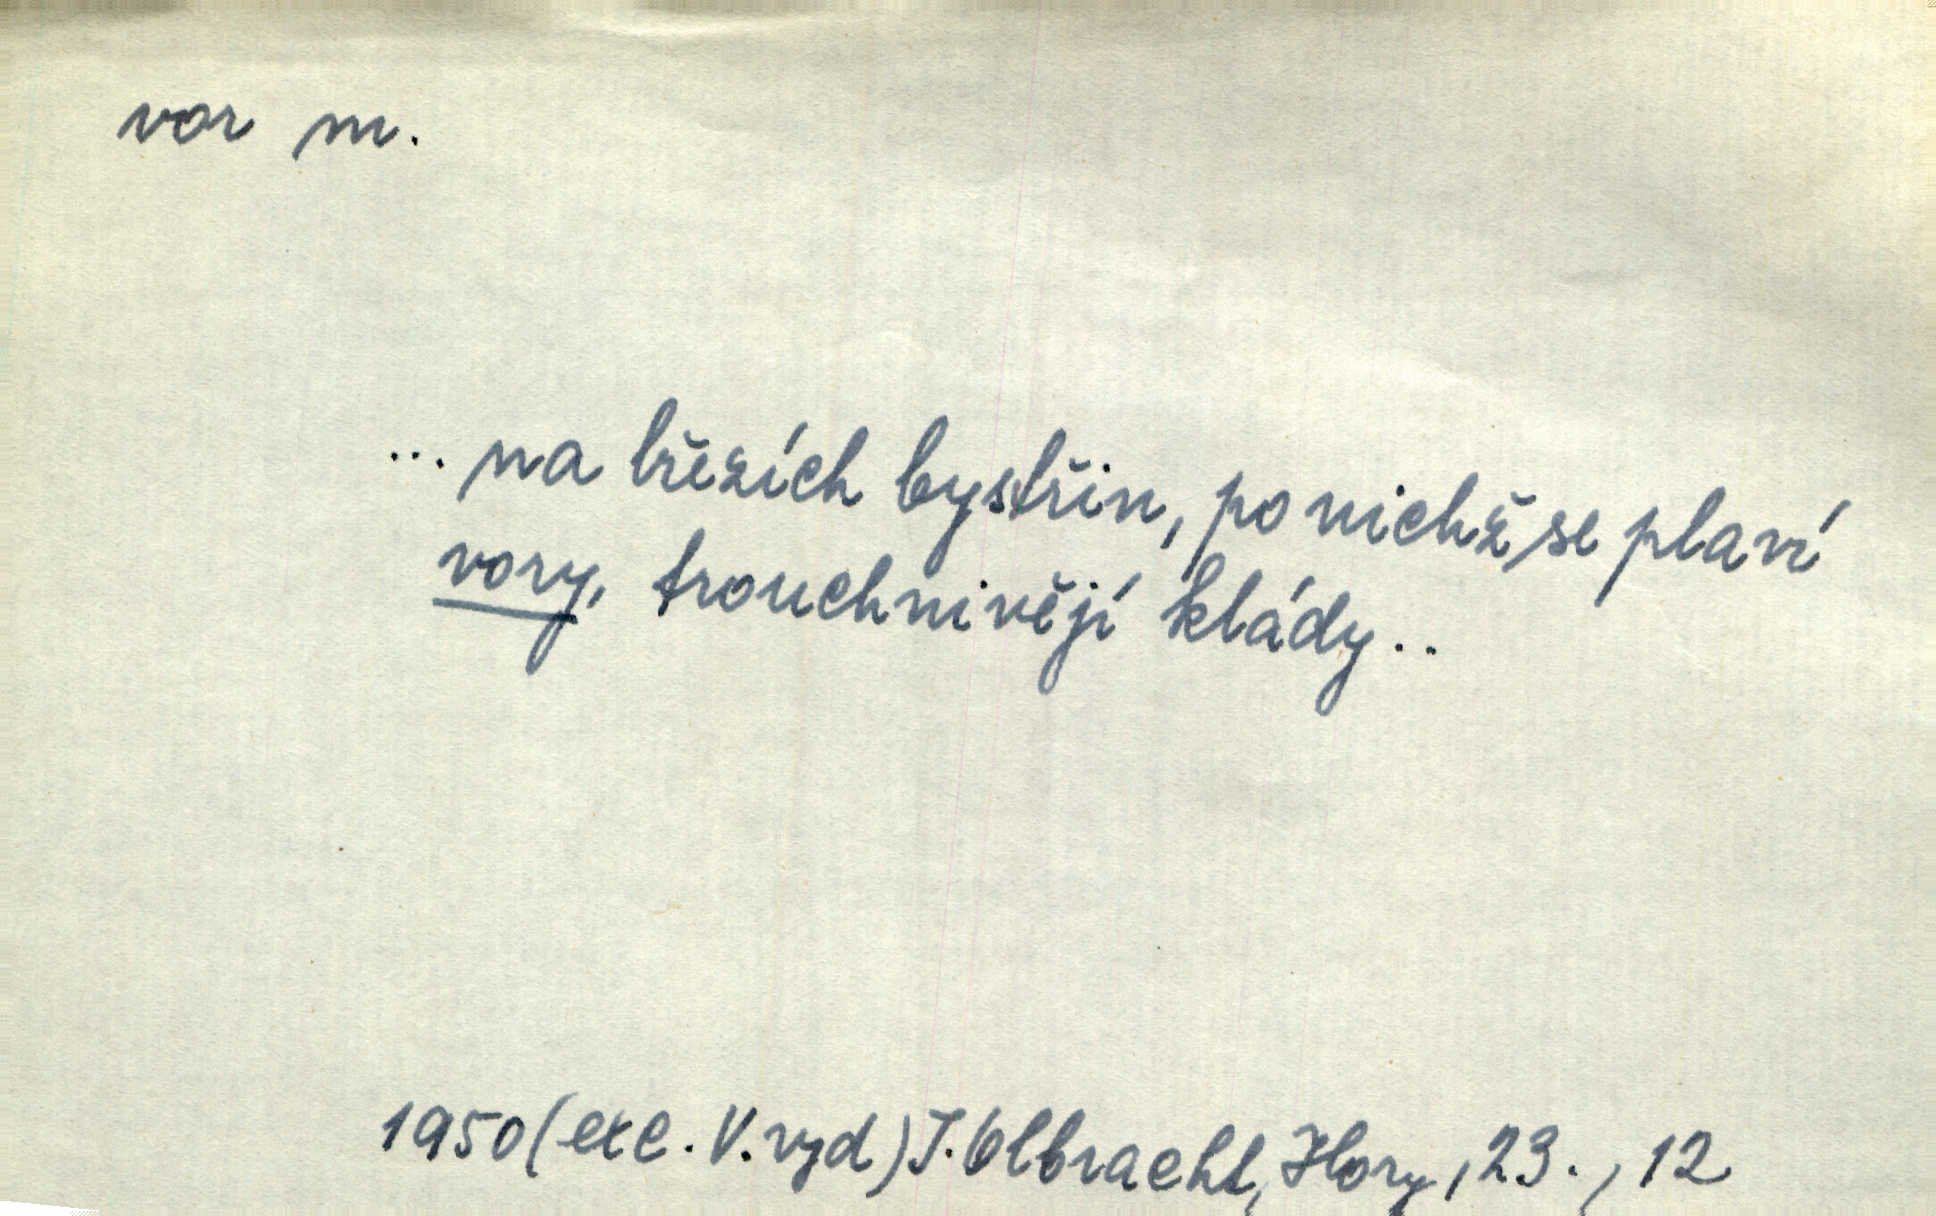 vor m.
... na březích bystřin, po nichž se plaví
vory, trouchnivějí klády..
1950 (exc. V. vyd) I. Olbracht, Hory, 23., 12